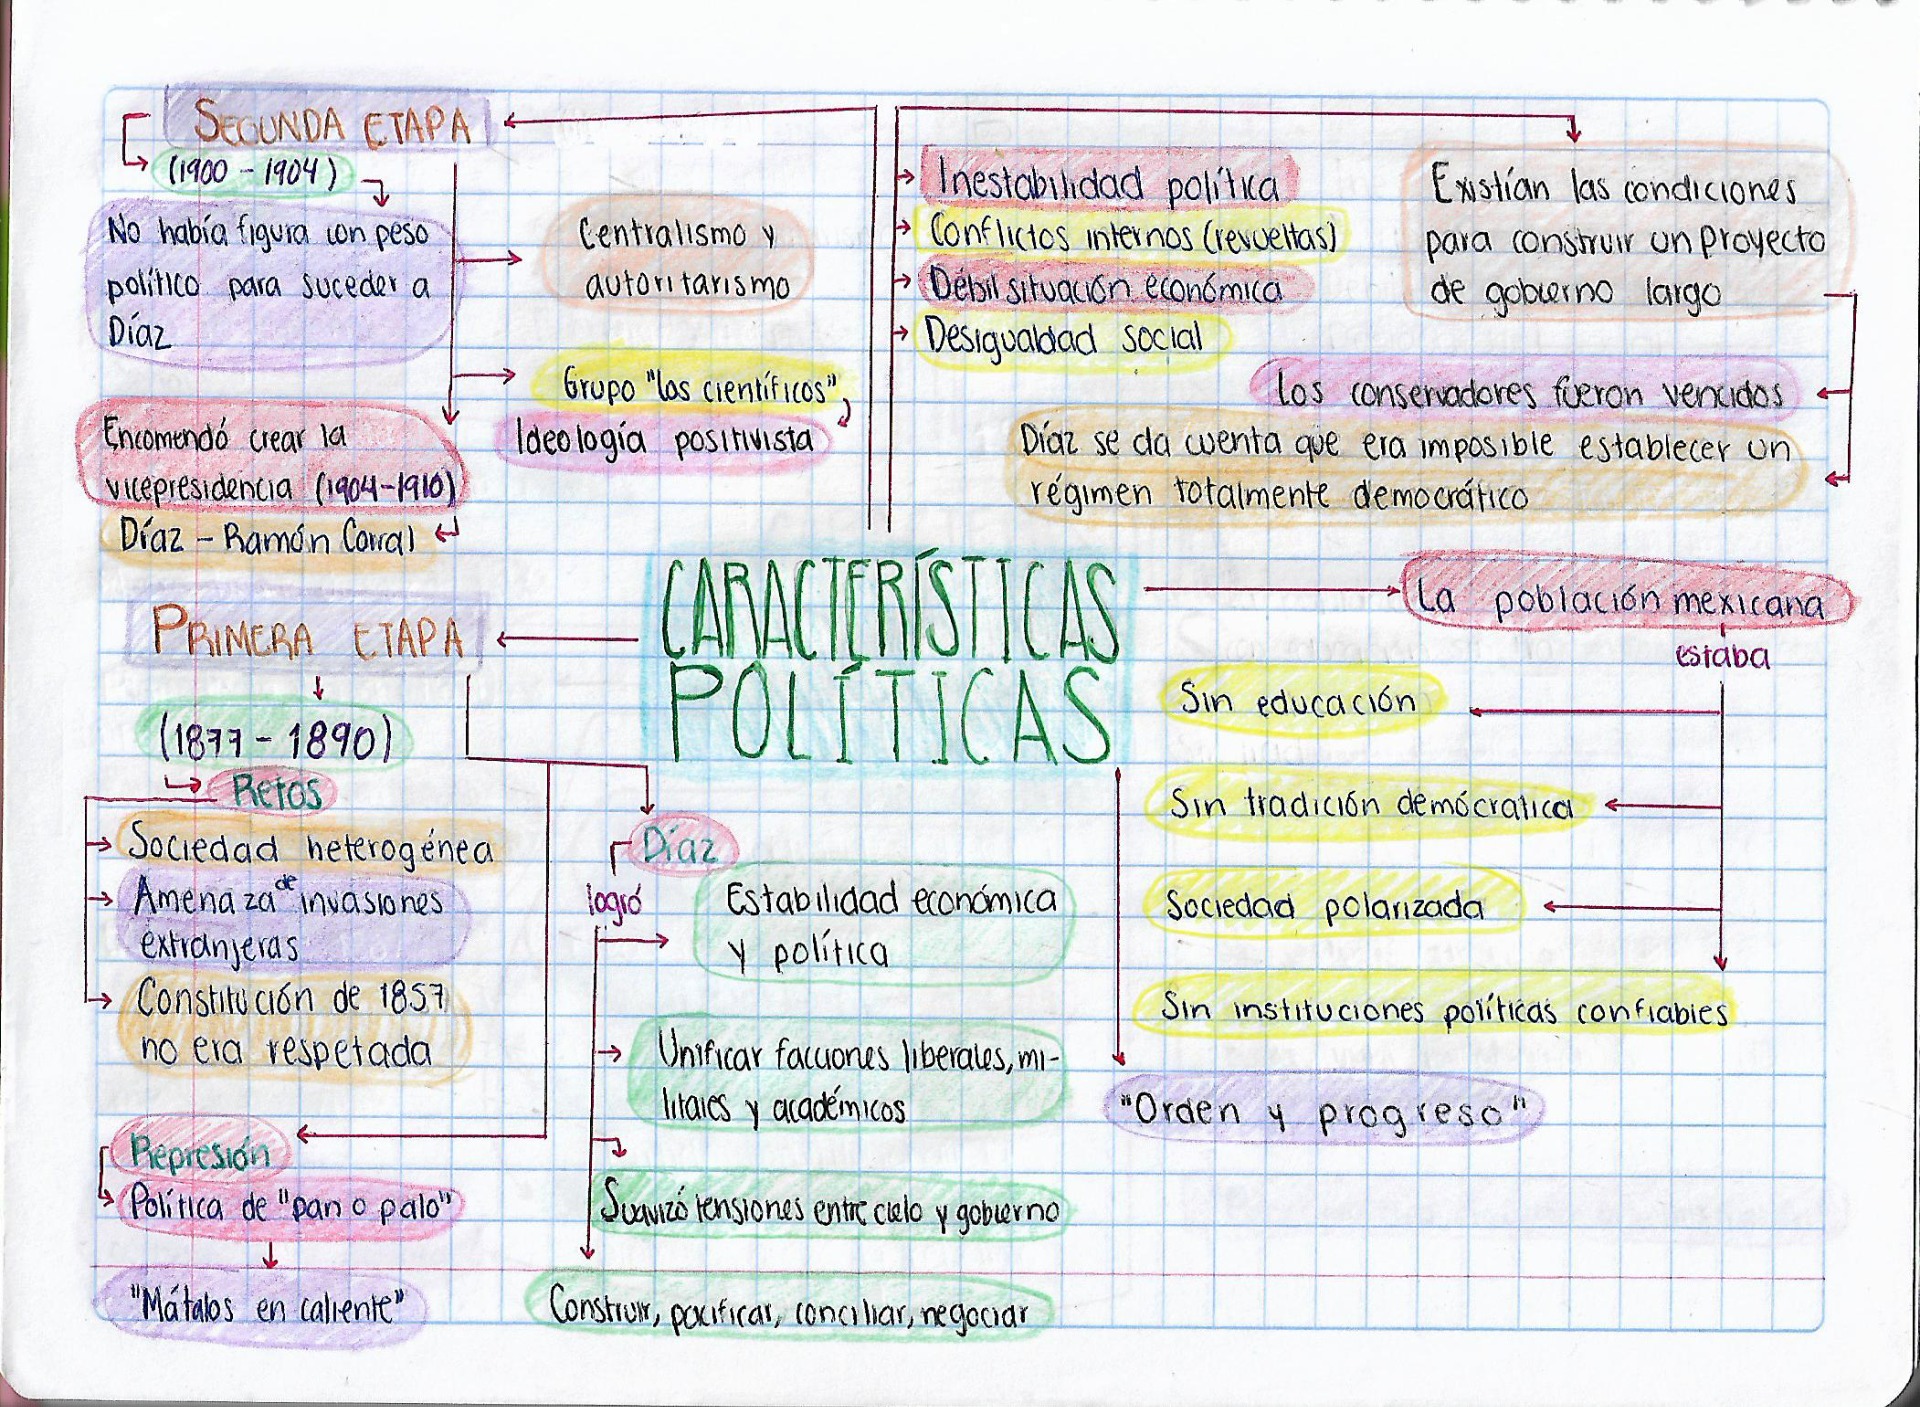 SEGUNDA ETAPA
(1900 - 1904)
No había figura con peso
político para suceder a
Díaz
Centralismo y
autoritarismo
Grupo "los científicos"
Ideología positivista
Encomendó crear la
vicepresidencia (1904-1910)
Díaz - Ramón Corral
Inestabilidad política
Conflictos internos (revueltas)
Débil situación económica
Desigualdad social
Existían las condiciones
para construir un proyecto
de gobierno largo
Los conservadores fueron vencidos
Díaz se da cuenta que era imposible establecer un
régimen totalmente democrático
CARACTERÍSTICAS
POLÍTICAS
La población mexicana
estaba
Sin educación
Sin tradición demócratica
Sociedad polarizada
Sin instituciones políticas confiables
"Orden y progreso"
PRIMERA ETAPA
(1877 - 1890)
Retos
Sociedad heterogénea
Amenaza de invasiones
extranjeras
Constitución de 1857
no era respetada
Represión
Política de "pan o palo"
"Mátalos en caliente"
Díaz
logró
Estabilidad económica
y política
Unificar facciones liberales, mi-
litares y académicos
Suavizó tensiones entre clelo y gobierno
Construir, pacificar, conciliar, negociar